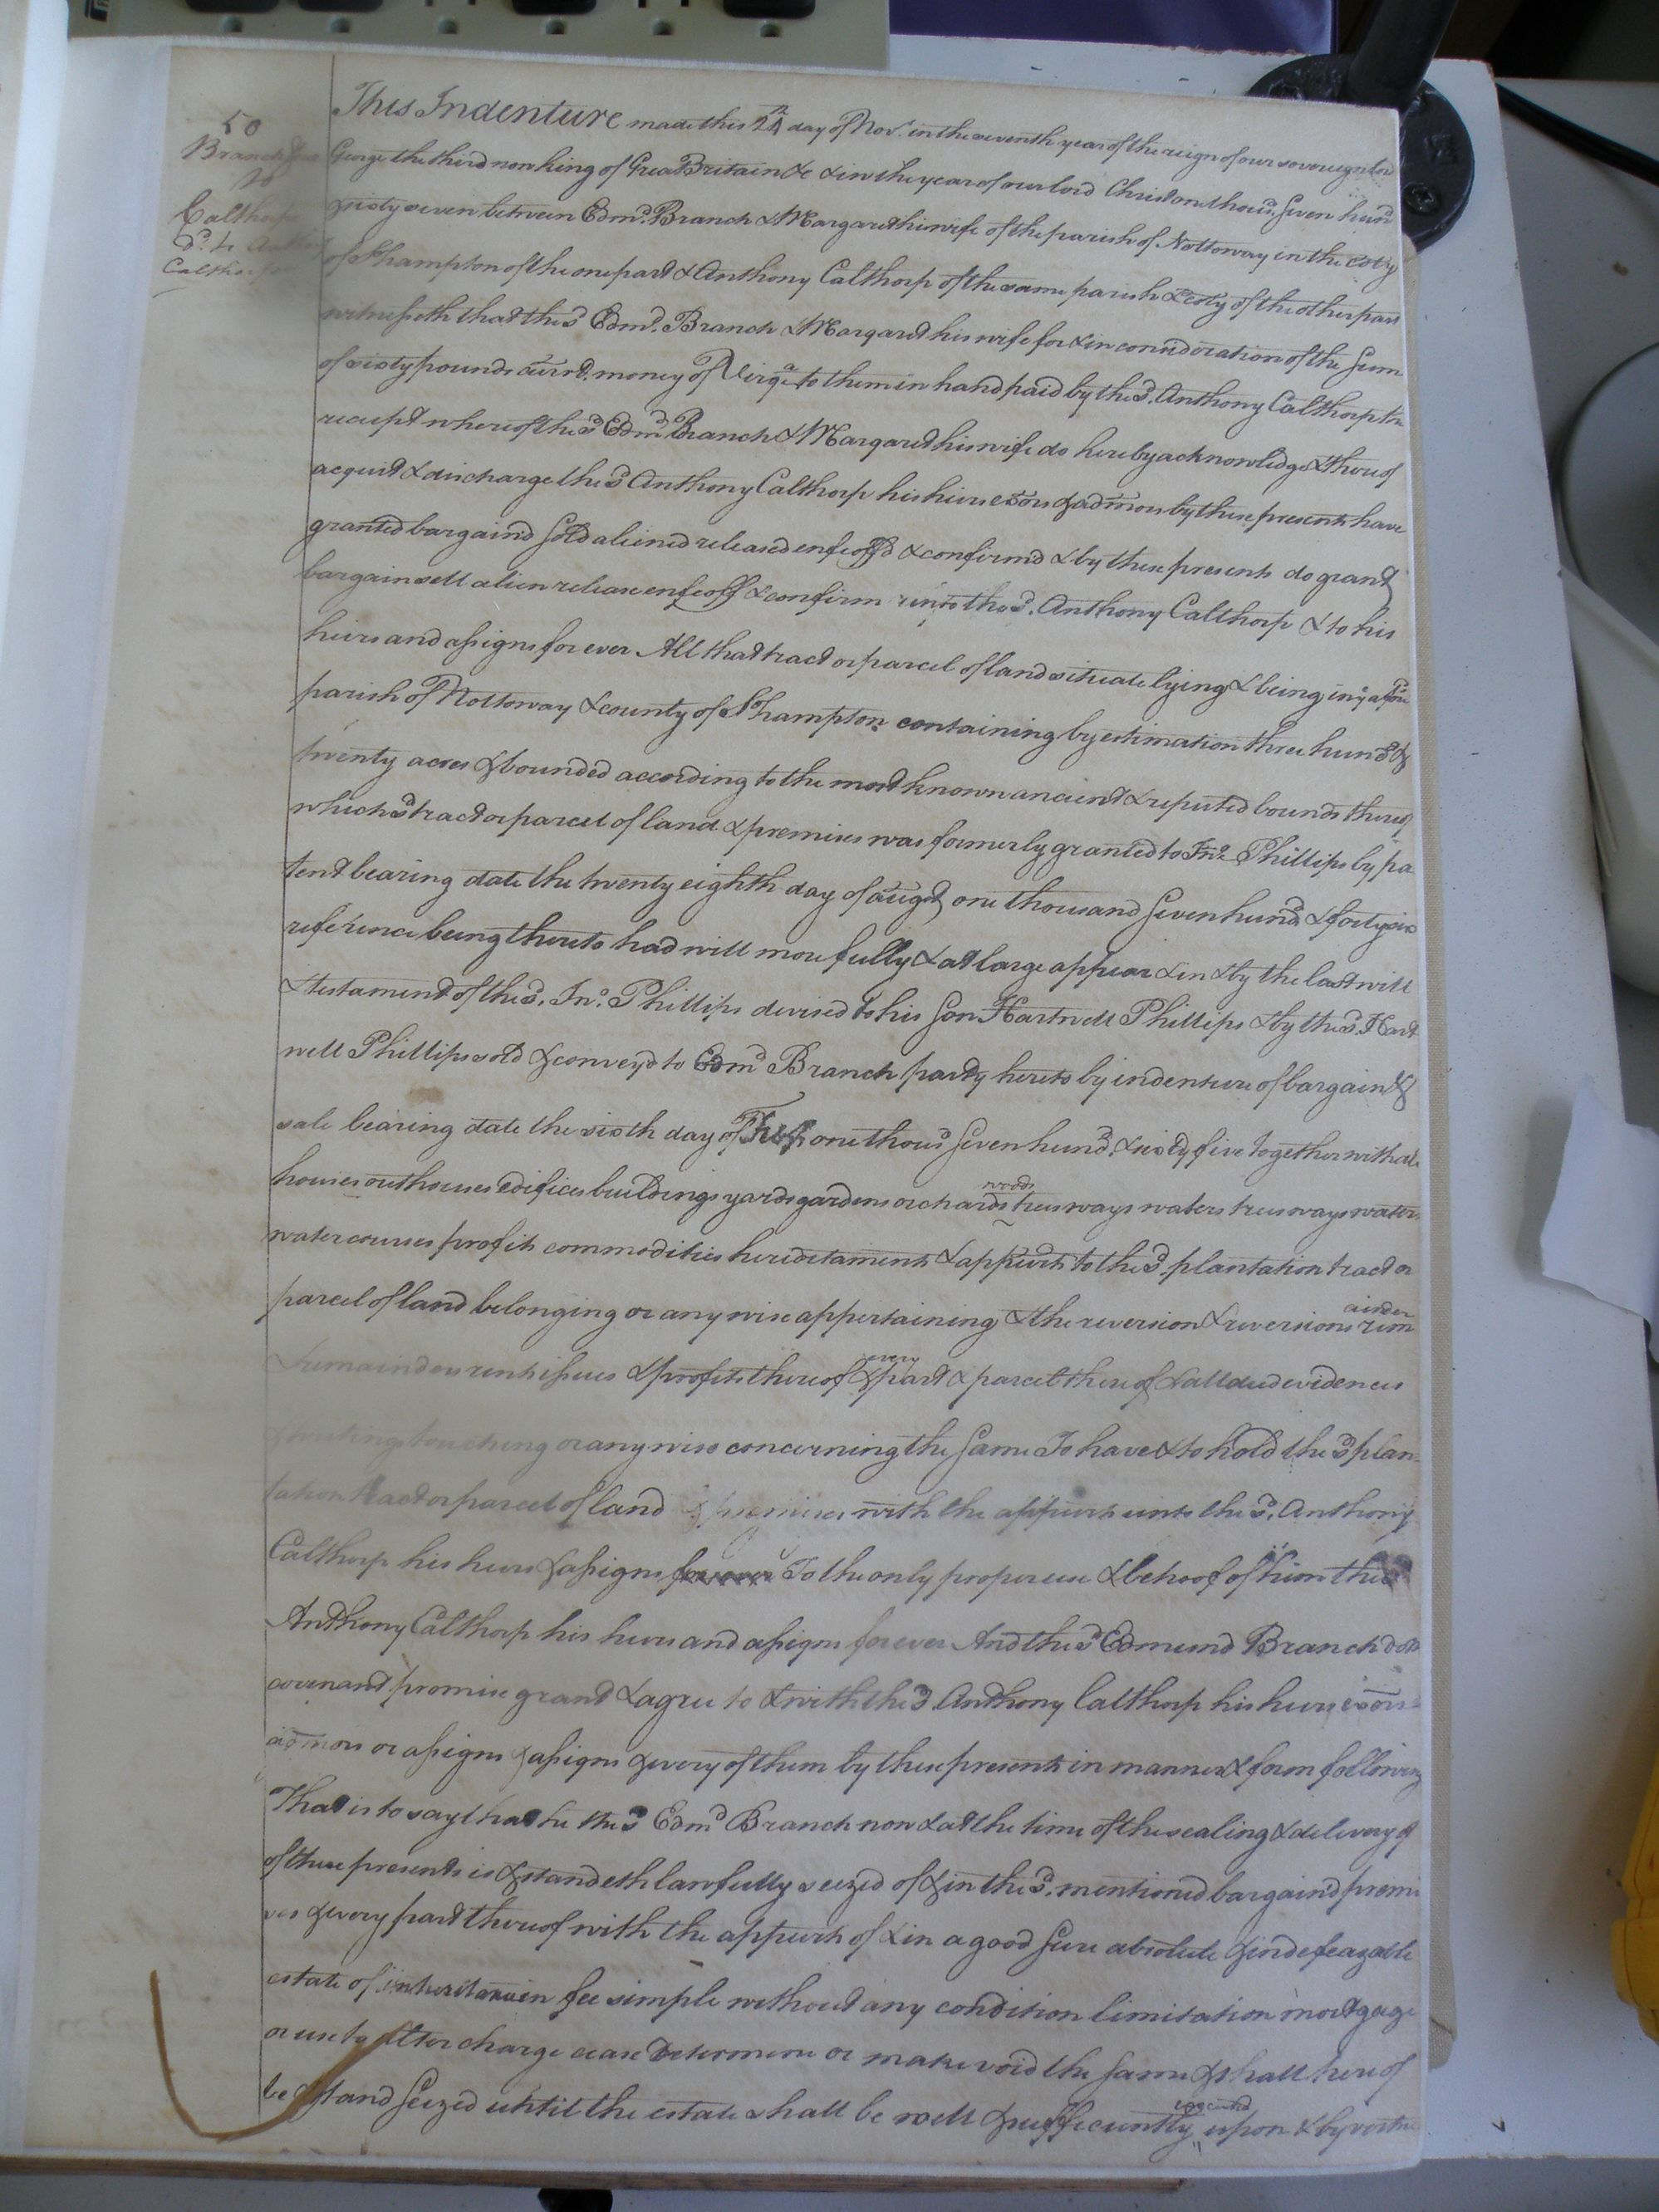 50
Branch
to
Calthorp
This Indenture made this day of Novr. in the seventh year of the reign of our sovereign lord
George the third now king of Great Britain &c & in the year of our lord Christ one thousd. Seven hund
sixty seven between Edmd. Branch & Margaret his wife of the parish of Nottoway in the coty
of S°hampton of the one part & Anthony Calthorp of the same parish & coty of the other part
witnesseth that the sd Edmd. Branch & Margaret his wife for & in consideration of the Sum
of sixty pounds currt. money of Virga. to them in hand paid by the sd. Anthony Calthorp the
receipt whereof the sd Edmd Branch & Margaret his wife do hereby acknowledge & thereof
acquit & discharge the sd Anthony Calthorp his heirs exors & admors by these presents have
granted bargaind Sold aliened released enfeoffd & confirmd & by these presents do grant
bargain sell alien release enfeoff & confirm unto the sd. Anthony Calthorp & to his
heirs and assigns for ever All that tract or parcel of land situate lying & being in ye afsd
parish of Nottoway & county of S°hampton containing by estimation three hund &
twenty acres & bounded according to the most known ancient & reputed bounds thereof
which sd tract or parcel of land & premises was formerly granted to Jno. Phillips by pa
tent bearing date the twenty eighth day of augst one thousand Seven hund & forty six
reference being thereto had will more fully & at large appear & in & by the last will
& testament of the sd. Jno. Phillips devised to his Son Hartwell Phillips & by the sd. Hart
well Phillips sold & conveyd to Edmd Branch party hereto by indenture of bargain &
sale bearing date the sixth day of one thousd Seven hund. & sixty five together with all
houses outhouses edifices buildings yards gardens orchards woods trees ways waters trees ways waters
watercourses profits commodities hereditaments & appurts to the sd plantation tract or
parcel of land belonging or any wise appertaining & the reversion & reversions remainder
& remainders rents issues & profits thereof & every part & parcel thereof & all deed evidences
touching or any wise concerning the Same To have & to hold the sd plan
tation tract or parcel of land & premises with the appurts unto the sd. Anthony
Calthorp his heirs & assigns for ever To the only proper use & behoof of him the sd
Anthony Calthorp his heirs and assigns for ever And the sd Edmund Branch doth
covenant promise grant & agree to & with the sd Anthony Calthorp his heirs exors
admors or assigns & assigns & every of them by these presents in manner & form following
That is to say that he the sd Edmd Branch now & at the time of the sealing & delivery of
of these presents is & standeth lawfully seized of & in the sd. mentioned bargaind premi
ses & every part thereof with the appurts of & in a good Sure absolute & indefeazable
estate of inheritance in fee simple without any condition limitation mortgage
or use to alter charge cease determine or make void the Same & shall hereof
be & stand Seized until the estate shall be well & sufficiently executed upon & by vertue